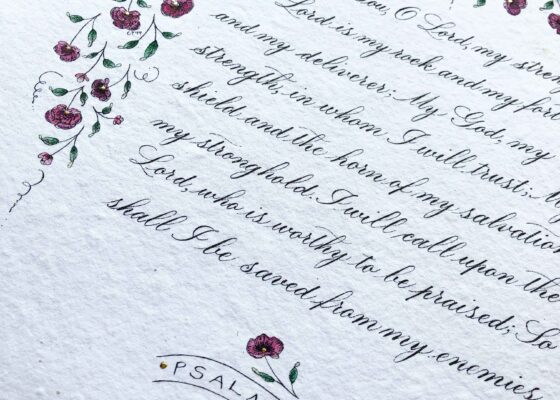 you, O Lord, my stren
Lord is my rock and my for
and my deliverer; My God, my
strength, in whom I will trust; My
shield and the horn of my salvation
my stronghold. I will call upon the
Lord, who is worthy to be praised; So
shall I be saved from my enemies
PSALM